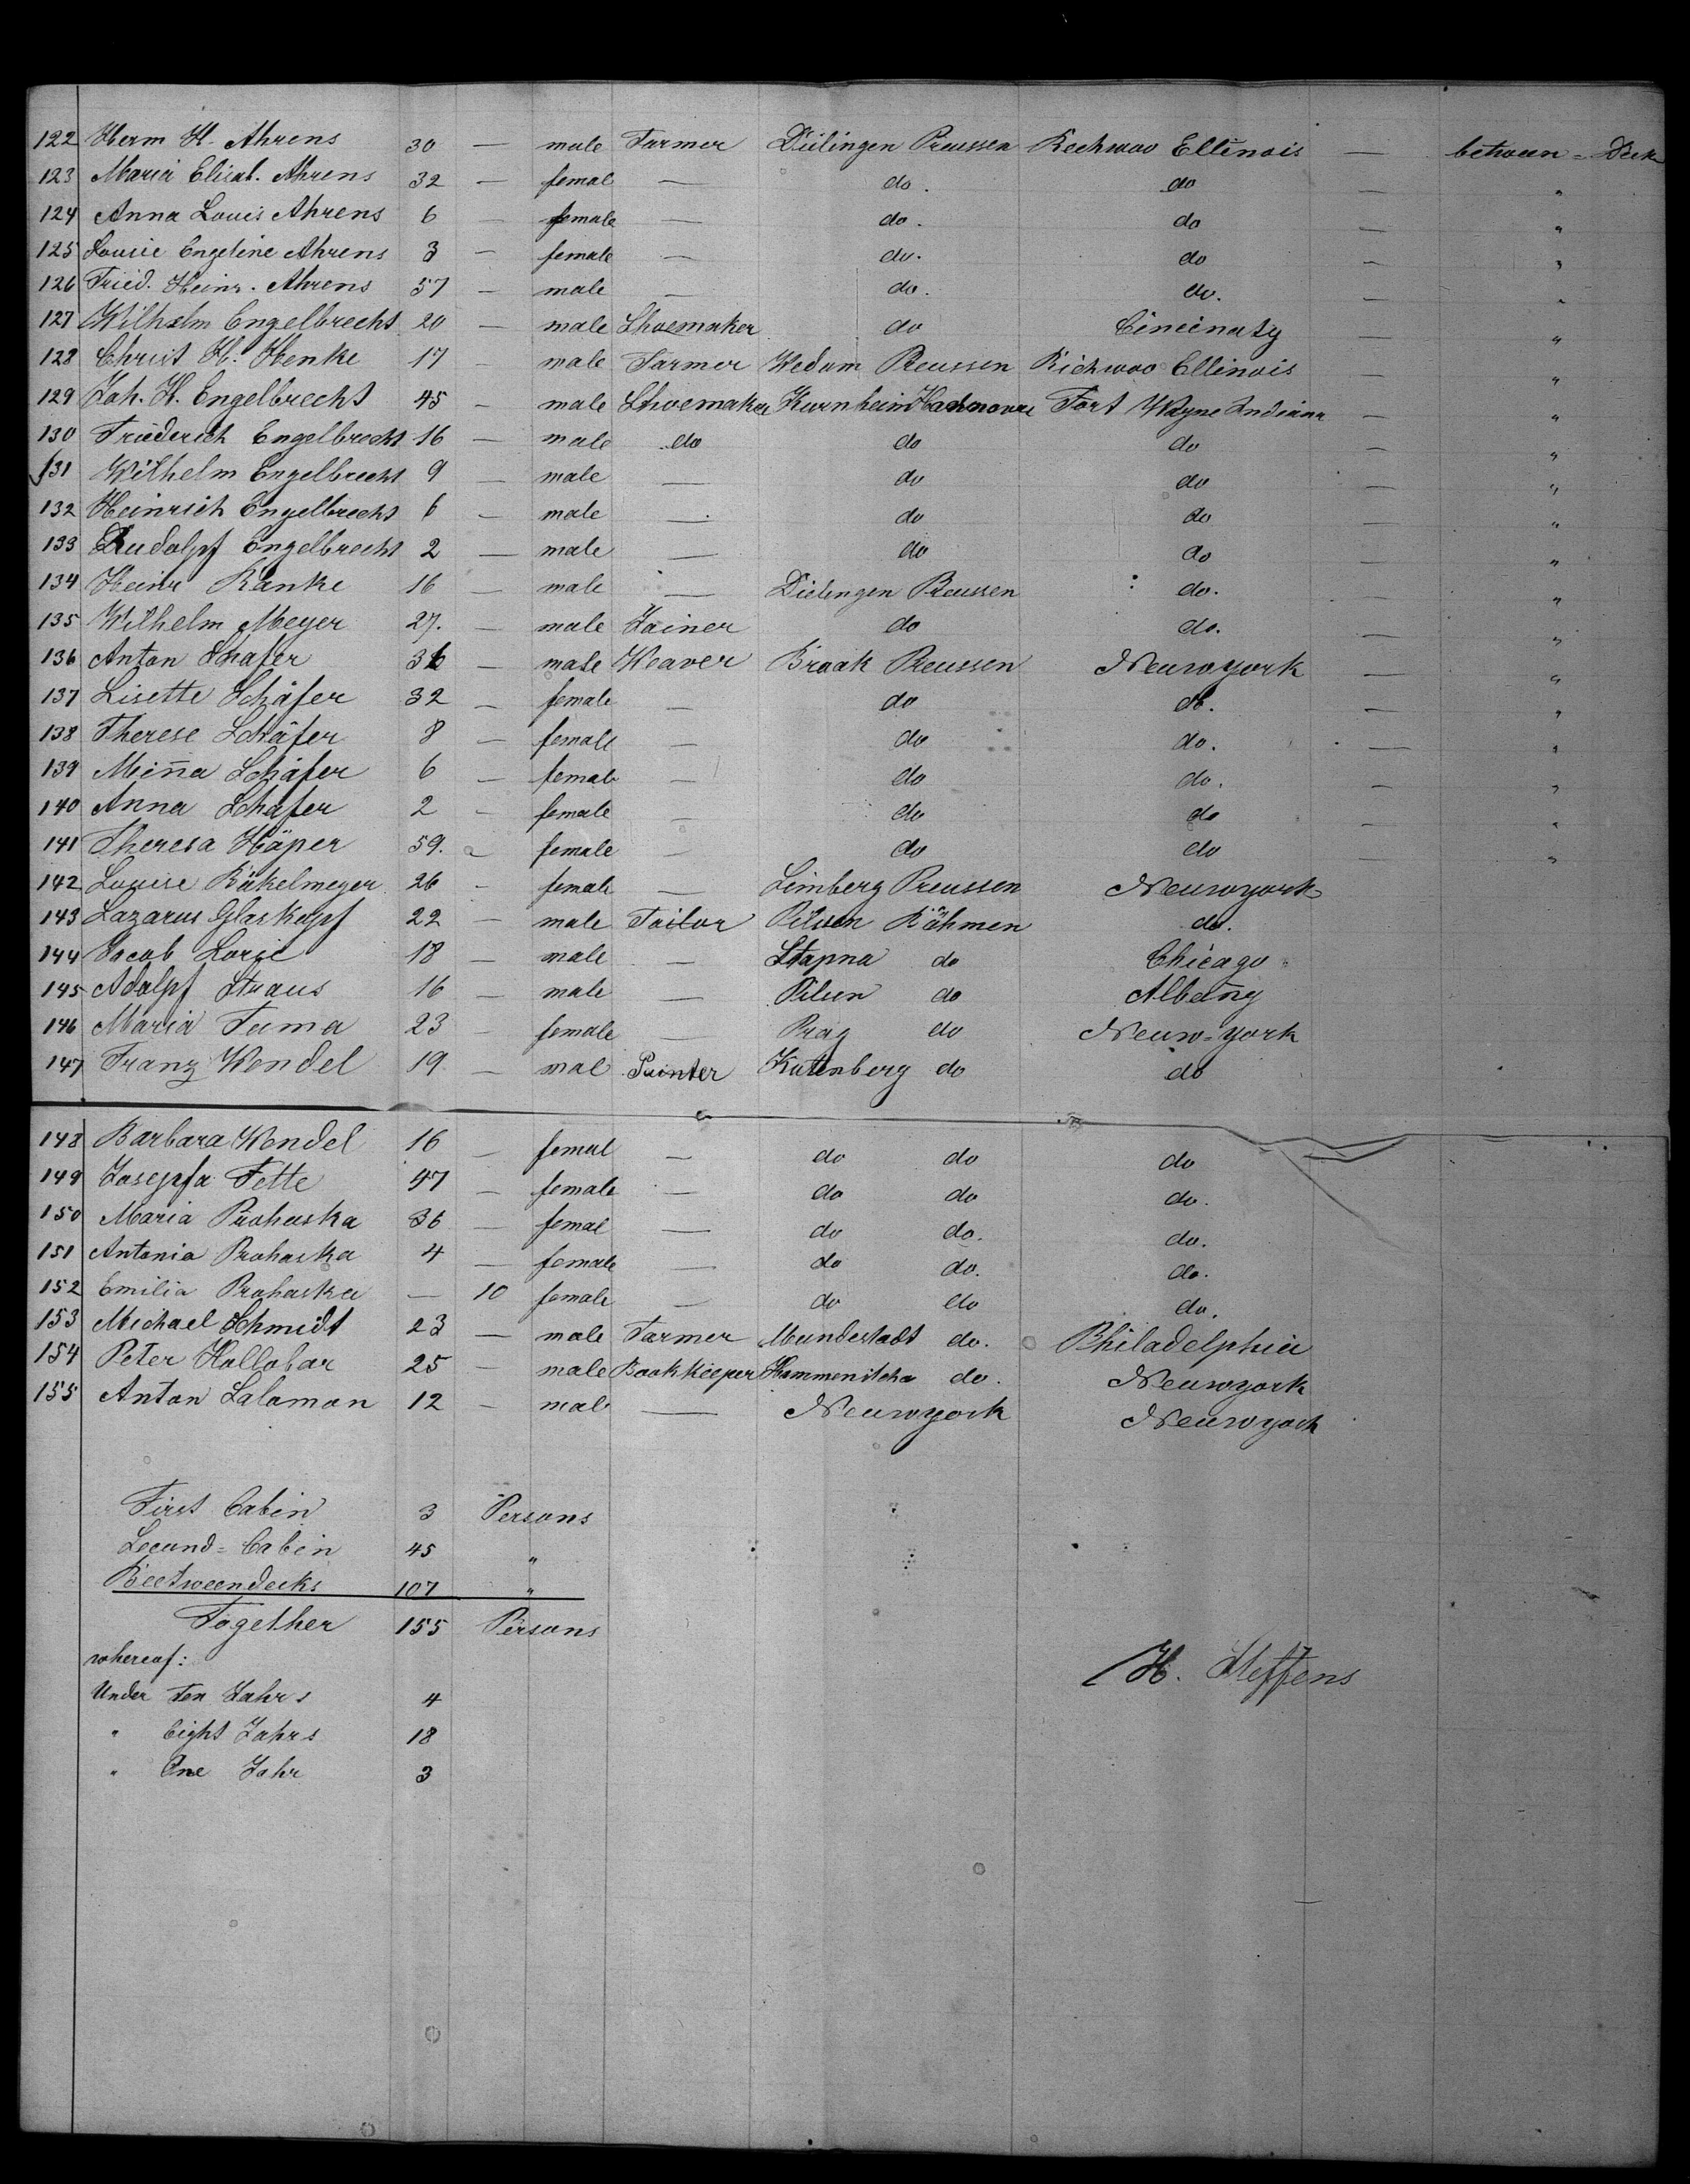 122 Herm H. Ahrens 30 — male Farmer Dielingen Preussen Rechwoo Ellinois — between = Deck
123 Maria Elisab. Ahrens 32 — femal — do. do — "
124 Anna Louis Ahrens 6 — female — do. do — "
125 Louise Engeline Ahrens 3 — female — do. do — "
126 Fried. Heinr. Ahrens 57 — male — do. do. — "
127 Wilhelm Engelbrecht 20 — male Shoemaker do Cincinaty — "
128 Christ H. Henke 17 — male Farmer Wedum Preussen Richwoo Ellinois — "
129 Joh. H. Engelbrecht 45 — male Shoemaker Kurnhein Hannover Fort Wayne Indiana — "
130 Friederich Engelbrecht 16 — male do do do — "
131 Wilhelm Engelbrecht 9 — male — do do — "
132 Heinrich Engelbrecht 6 — male — do do — "
133 Rudolpf Engelbrecht 2 — male — do do — "
134 Heinr Ranke 16 — male — Dielengen Preussen do. — "
135 Wilhelm Meyer 27. — male Joiner do do. — "
136 Anton Schafer 36 — male Weaver Braak Preussen Neuwyork — "
137 Lisette Schäfer 32 — female — do do. — "
138 Therese Schäfer 8 — female — do do. — "
139 Miña Schäfer 6 — female — do do. — "
140 Anna Schafer 2 — female — do do — "
141 Theresa Häper 59. — female — do do — "
142 Louise Bäkelmeyer 26 — female — Limberg Preussen Neuwyork
143 Lazarus Glaskopf 22 — male Tailor Pilsen Böhmen do.
144 Jacob Lorie 18 — male — Stapna do Chicago
145 Adolpf Straus 16 — male — Pilsen do Albany
146 Maria Tuma 23 — female — Prag do Neuw-york
147 Franz Wendel 19. — mal Painter Kutenberg do do
148 Barbara Wendel 16 — femal — do do do
149 Josepfa Fette 47 — female — do do do.
150 Maria Prohaska 36 — femal — do do. do.
151 Antonia Prohaska 4 — female — do do. do.
152 Emilia Prohaska — 10 female — do do do.
153 Michael Schmidt 23 — male Farmer Mundestadt do. Philadelphia
154 Peter Hollobar 25 — male Bookkieper Hammenitcha do. Neuwyork
155 Anton Salomon 12 — mal — Neuwyork Neuwyork
First Cabin 3 Persons
Secund = Cabin 45 "
Beetweendecks 107 "
Together 155 Persons
whereof:
H. Steffens
Under Ten Jahrs 4
" Eight Jahrs 18
" One Jahr 3